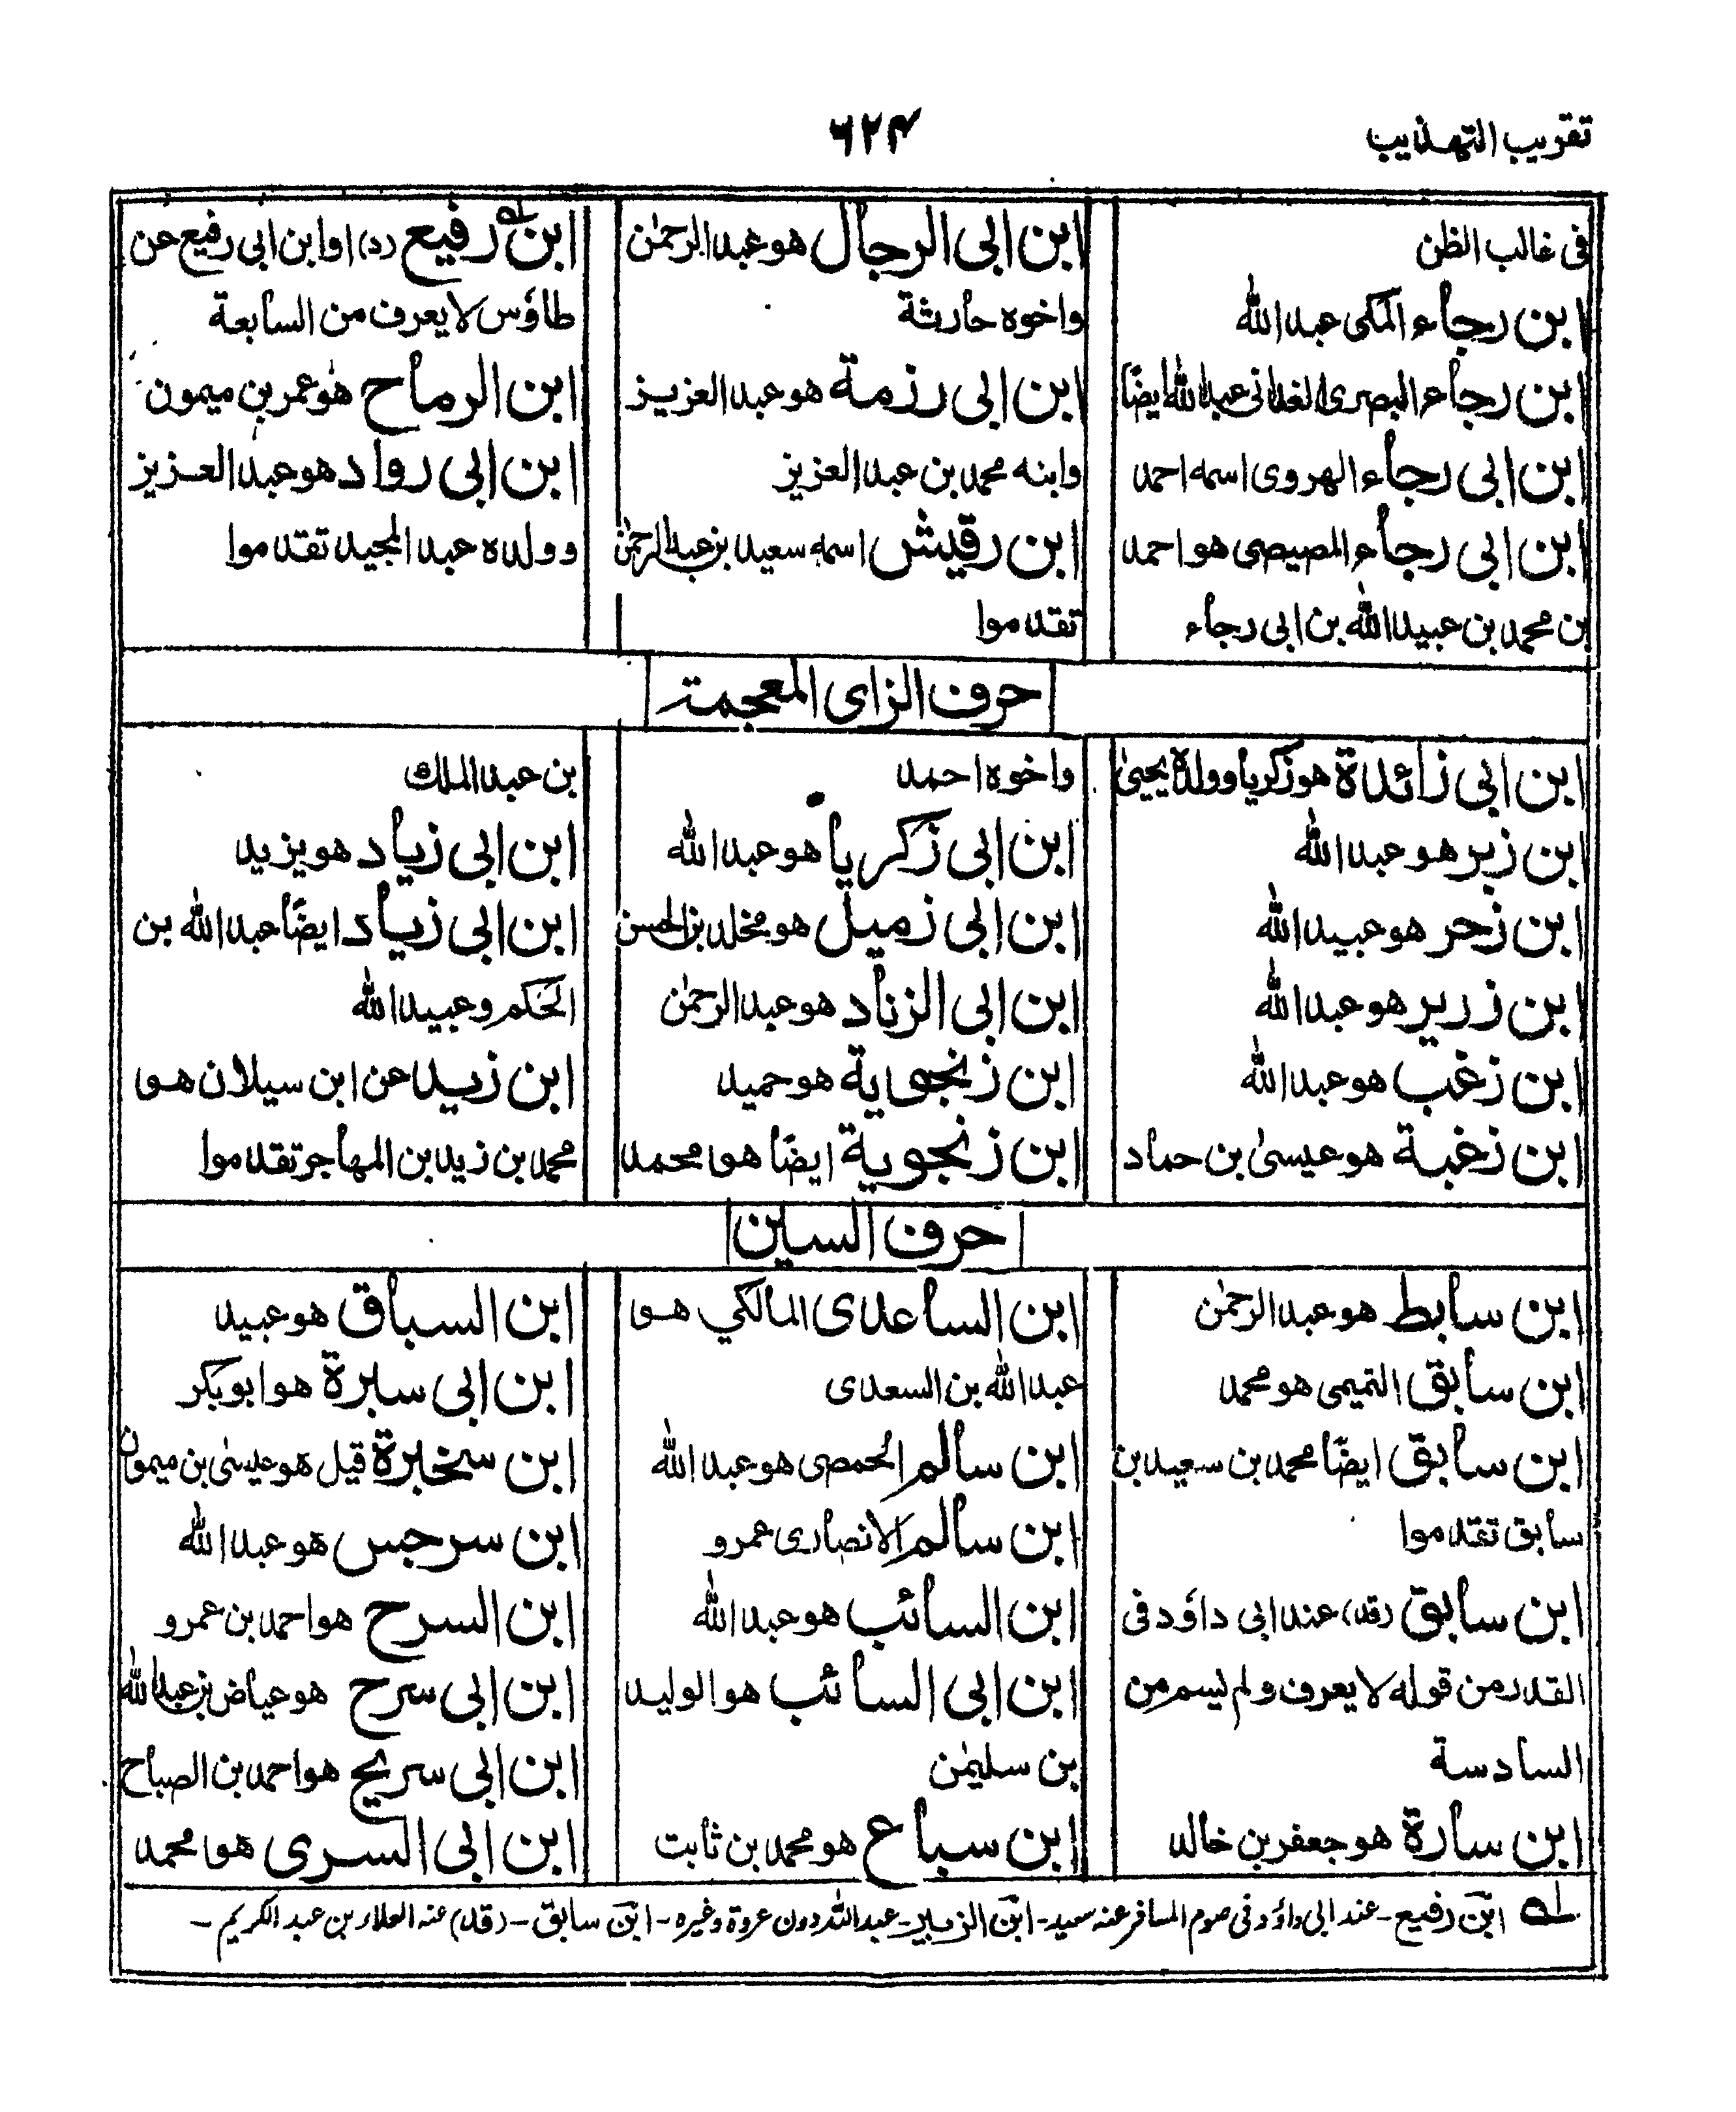 تقریب التهذیب
٦٢٤
فی غالب الظن
ابن رجاء المکی عبد الله
ابن رجاء البصری الغدانی عبد الله ایضًا
ابن ابی رجاء الهروی اسمه احمد
ابن ابی رجاء المصیصی هو احمد
بن محمد بن عبید الله بن ابی رجاء
ابن ابی الرجال هو عبد الرحمٰن
واخوه حارثة
ابن ابی رزمة هو عبد العزیز
وابنه محمد بن عبد العزیز
ابن رقیش اسمه سعید بن عبد الرحمٰن
تقدموا
ابن رفیع (د) او ابن ابی رفیع عن
طاؤس لا یعرف من السابعة
ابن الرماح هو عمر بن میمون
ابن ابی رواد هو عبد العزیز
وولده عبد المجید تقدموا
حرف الزای المعجمة
ابن ابی زائدة هو زکریا وولده یحییٰ
ابن زبر هو عبد الله
ابن زحر هو عبید الله
ابن زریر هو عبد الله
ابن زغب هو عبد الله
ابن زغبة هو عیسیٰ بن حماد
واخوه احمد
ابن ابی زکریا هو عبد الله
ابن ابی زمیل هو مخلد بن الحسن
ابن ابی الزناد هو عبد الرحمٰن
ابن زنجوایة هو حمید
ابن زنجویة ایضًا هو محمد
بن عبد الملك
ابن ابی زیاد هو یزید
ابن ابی زیاد ایضًا عبد الله بن
الحکم وعبید الله
ابن زید عن ابن سیلان هو
محمد بن زید بن المهاجر تقدموا
حرف السین
ابن سابط هو عبد الرحمٰن
ابن سابق التمیمی هو محمد
ابن سابق ایضًا محمد بن سعید بن
سابق تقدموا
ابن سابق (قد) عند ابی داؤد فی
القدر من قوله لا یعرف ولم یسم من
السادسة
ابن سارة هو جعفر بن خالد
ابن الساعدی المالکي هو
عبد الله بن السعدی
ابن سالم الحمصی هو عبد الله
ابن سالم الانصاری عمرو
ابن السائب هو عبد الله
ابن ابی السائب هو الولید
بن سلیمٰن
ابن سباع هو محمد بن ثابت
ابن السباق هو عبید
ابن ابی سبرة هو ابو بکر
ابن سخبرة قیل هو عیسیٰ بن میمون
ابن سرجس هو عبد الله
ابن السرح هو احمد بن عمرو
ابن ابی سرح هو عیاض بن عبد الله
ابن ابی سریج هو احمد بن الصباح
ابن ابی السری هو محمد
له ابن رفیع - عند ابی داؤد فی صوم المسافر عنه سعید - ابن الزبیر - عبد الله دون عروة وغیره - ابن سابق - (قد) عنه العلاء بن عبد الکریم -